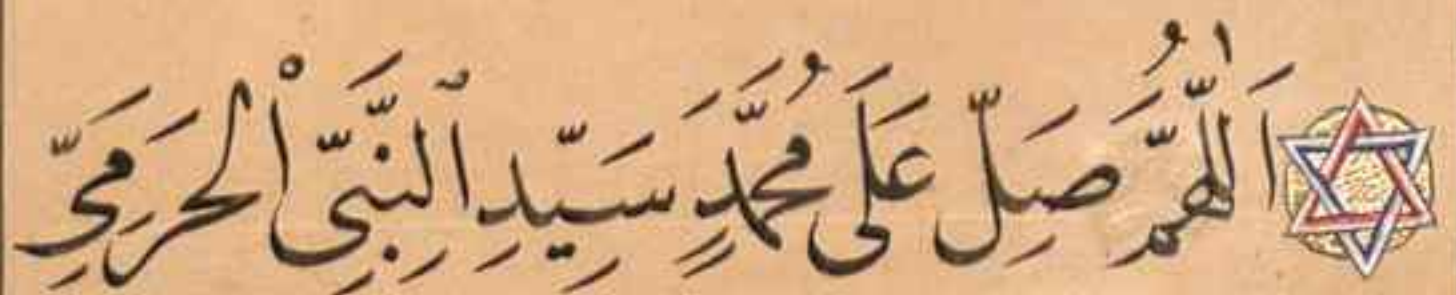 اَللّٰهُمَّ صَلِّ عَلَى مُحَمَّدٍ سَيِّدِ ٱلنَّبِيِّ ٱلْحَرَمِيِّ